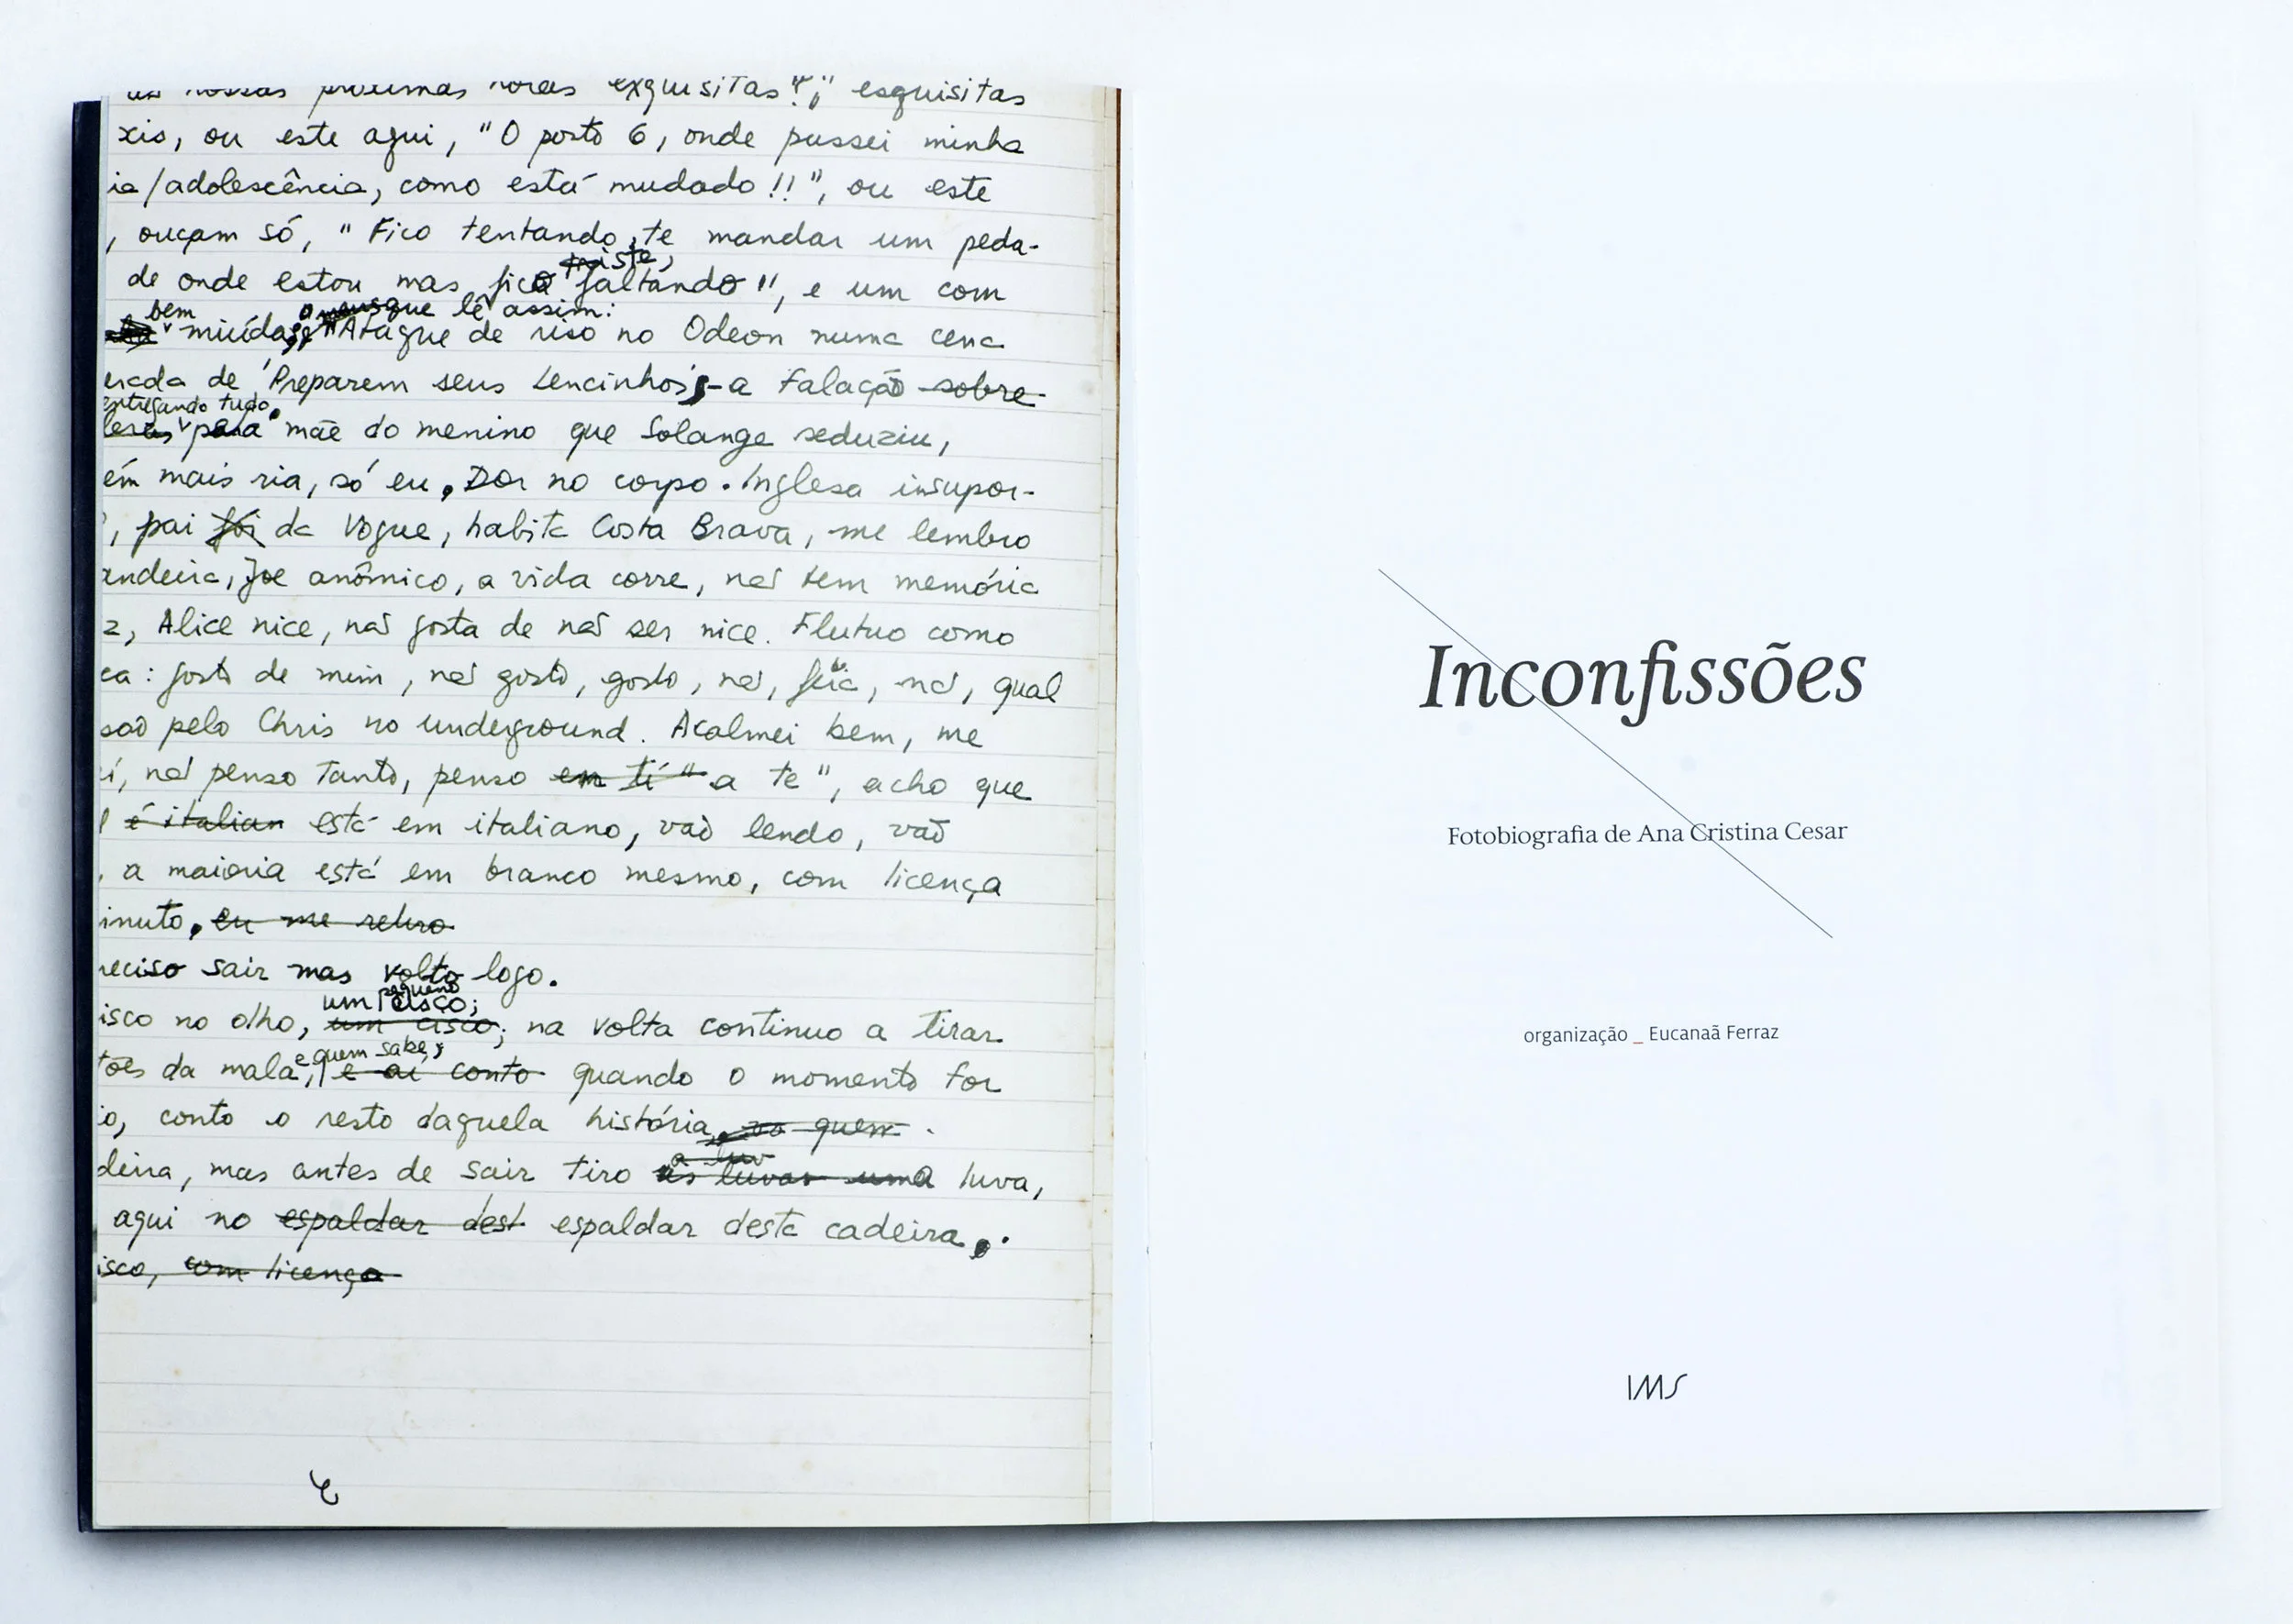 as nossas próximas horas exquisitas!", esquisitas
xis, ou este aqui, "O posto 6, onde passei minha
ia/adolescência, como está mudado!!", ou este
, ouçam só, "Fico tentando te mandar um peda-
triste,
de onde estou mas fica faltando", e um com
bem o que lê assim:
miúda, "Ataque de riso no Odeon numa cena
erada de 'Preparem seus lencinhos', a falação sobre
entregando tudo
para mãe do menino que Solange seduziu,
ém mais ria, só eu. Dor no corpo. Inglesa insupor-
, pai foi da Vogue, habita Costa Brava, me lembro
andeira, Joe anômico, a vida corre, não tem memória
z, Alice nice, não gosta de não ser nice. Flutuo como
ca: gosto de mim, não gosto, gosto, não, não, qual
são pelo Chris no underground. Acalmei bem, me
í, não penso tanto, penso em ti "a te", acho que
l é italian está em italiano, vão lendo, vão
, a maioria está em branco mesmo, com licença
inuto. eu me retiro
reciso sair mas volto logo.
um pequeno cisco;
isco no olho, um cisco; na volta continuo a tirar
e quem sabe,
tões da mala, e aí conto quando o momento for
io, conto o resto daquela história, quem.
a luv
deira, mas antes de sair tiro as luvas uma luva,
aqui no espaldar dest espaldar desta cadeira.
isco, com licença
Inconfissões
Fotobiografia de Ana Cristina Cesar
organização _ Eucanaã Ferraz
IMS